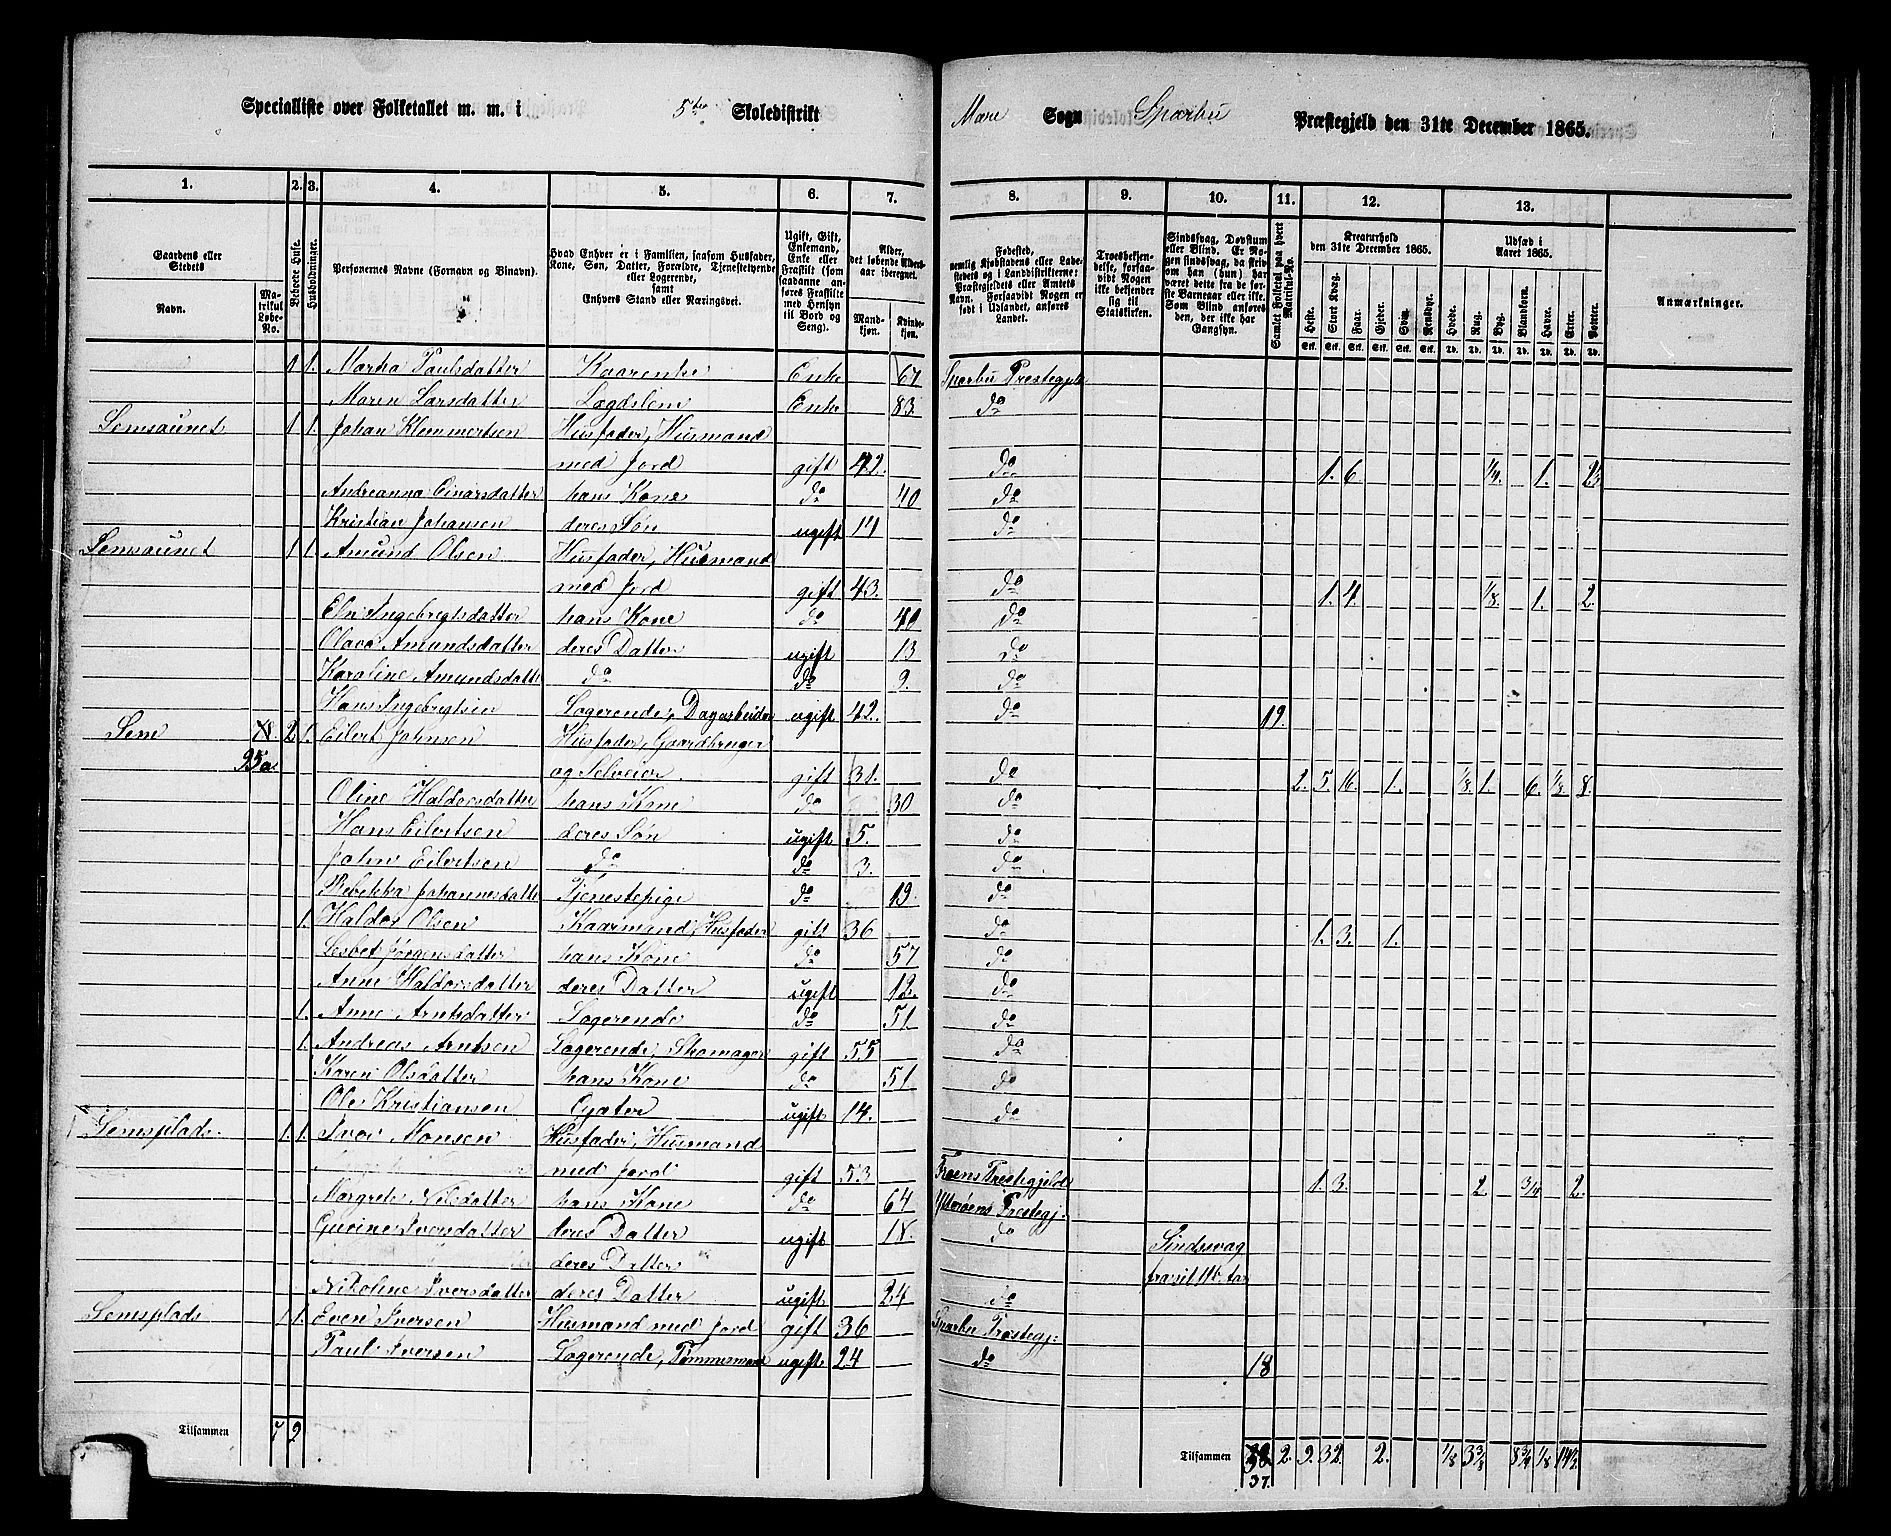 Specialliste over Folketallet m. m. i 5te Skoledistrikt Mære Sogn Sparbu Præstegjeld den 31te December 1865.
1. 2. 3. 4. 5. 6. 7. 8. 9. 10. 11. 12. 13.
Gaardens eller Stedets
Navn.
Matrikul Løbe-No.
Beboede Huse.
Husholdninger.
Personernes Navne (Fornavn og Binavn).
Hvad Enhver er i Familien, saasom Husfader, Kone, Søn, Datter, Forældre, Tjenestetyende eller Logerende, samt Enhvers Stand eller Næringsvei.
Ugift, Gift, Enkemand, Enke eller Fraskilt (som saadanne anføres Fraskilte med Hensyn til Bord og Seng).
Alder, det løbende Alders-aar iberegnet.
Mandkjøn. Kvindekjøn.
Fødested, nemlig Kjøbstadens eller Ladestedets og i Landdistrikterne: Præstegjeldets eller Amtets Navn. Forsaavidt Nogen er født i Udlandet, anføres Landet.
Troesbekjendelse, forsaavidt Nogen ikke bekjender sig til Statskirken.
Sindssvag, Døvstum eller Blind. Er Nogen sindssvag, da skrives om han (hun) har været dette fra de første Barneaar eller ikke. Som Blind anføres den, der ikke har Gangsyn.
Samlet Folketal paa hvert Matrikul-No.
Kreaturhold den 31te December 1865.
Heste. Stort Kvæg. Faar. Gjeder. Svin. Rensdyr.
Udsæd i Aaret 1865.
Hvede. Rug. Byg. Blandkorn. Havre. Erter. Poteter.
Anmærkninger.
1 1. Martha Paulsdatter Kaarenke Enke 67 Sparbu Prestegjeld
Maren Larsdatter Lægdslem Enke 83 do
Semsaunet 1 1. Johan Klemmertsen Husfader, Husmand
med Jord gift 42. do 1. 6. 1/4. 1. 2 1/2
Andreanna Einarsdatter hans Kone do 40 do
Kristian Johansen deres Søn ugift 14 do
Semsaunet 1 1 Amund Olsen Husfader, Husmand
med Jord gift 43. do 1. 4. 1/8. 1. 2.
Eln Ingebregtsdatter hans Kone do 40 do
Olava Amundsdatter deres Datter ugift 13 do
Karoline Amundsdatter do do 9. do
Hans Ingebregtsen Logerende, Dagarbeider ugift 42. do 19.
Sem 2 1. Eilert Johnsen Husfader, Gaardbruger
95a. og Selveier gift 31. do 2. 5. 16. 1. 1/8. 1. 6. 1/8. 8.
Oline Haldorsdatter hans Kone do 30 do
Hans Eilertsen deres Søn ugift 5. do
John Eilertsen do do 3. do
Rebekka Johannesdatter Tjenestepige do 19. do
1. Haldor Olsen Kaarmand, Husfader gift 36 do 1. 3. 1.
Lesbet Jørgensdatter hans Kone do 57 do
Anne Haldorsdatter deres Datter ugift 12. do
1. Anne Arntsdatter Logerende do 51 do
1. Andreas Arntsen Logerende, Skomager gift 55 do
Karen Olsdatter hans Kone do 51 do
Ole Kristiansen Gjæter ugift 14. do
Semsplads. 1. 1. Iver Monsen Husfader, Husmand
med Jord gift 53 Præstegjeld 1. 3. 2. 3/4. 2.
Margrete Nilsdatter hans Kone do 64 Ytterøens Prestegj.
Gurine Iversdatter deres Datter ugift 18. do Sindssvag
deres Datter
Nikoline Iversdatter deres Datter ugift 24 do
Semsplads 1 1. Even Iversen Husmand med Jord gift 36 Sparbu Prestegj:
Paul Iversen Logerende, Tømmermand ugift 24 do 18
Tilsammen 7 9
Tilsammen 38 2. 9. 32. 2. 1/8 3 3/8 8 3/4 1/8 14 1/2
37.